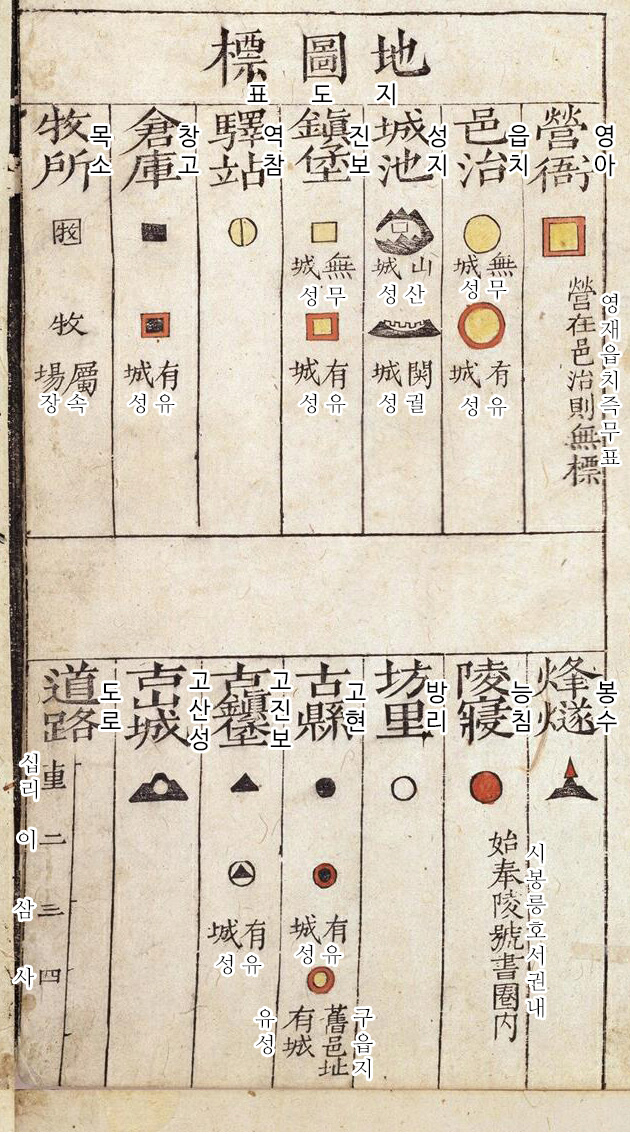 地圖標
지도표
營衙
영아
營在邑治則無標
영재읍치즉무표
邑治
읍치
無城
무성
有城
유성
城池
성지
山城
산성
関城
궐성
鎭堡
진보
無城
무성
有城
유성
驛站
역참
倉庫
창고
有城
유성
牧所
목소
牧
牧
屬場
속장
烽燧
봉수
陵寢
능침
始奉陵號書圈内
시봉릉호서권내
坊里
방리
古縣
고현
有城
유성
舊邑址
구읍지
有城
유성
古鎭堡
고진보
有城
유성
古山城
고산성
道路
도로
十里
십리
二
이
三
삼
四
사